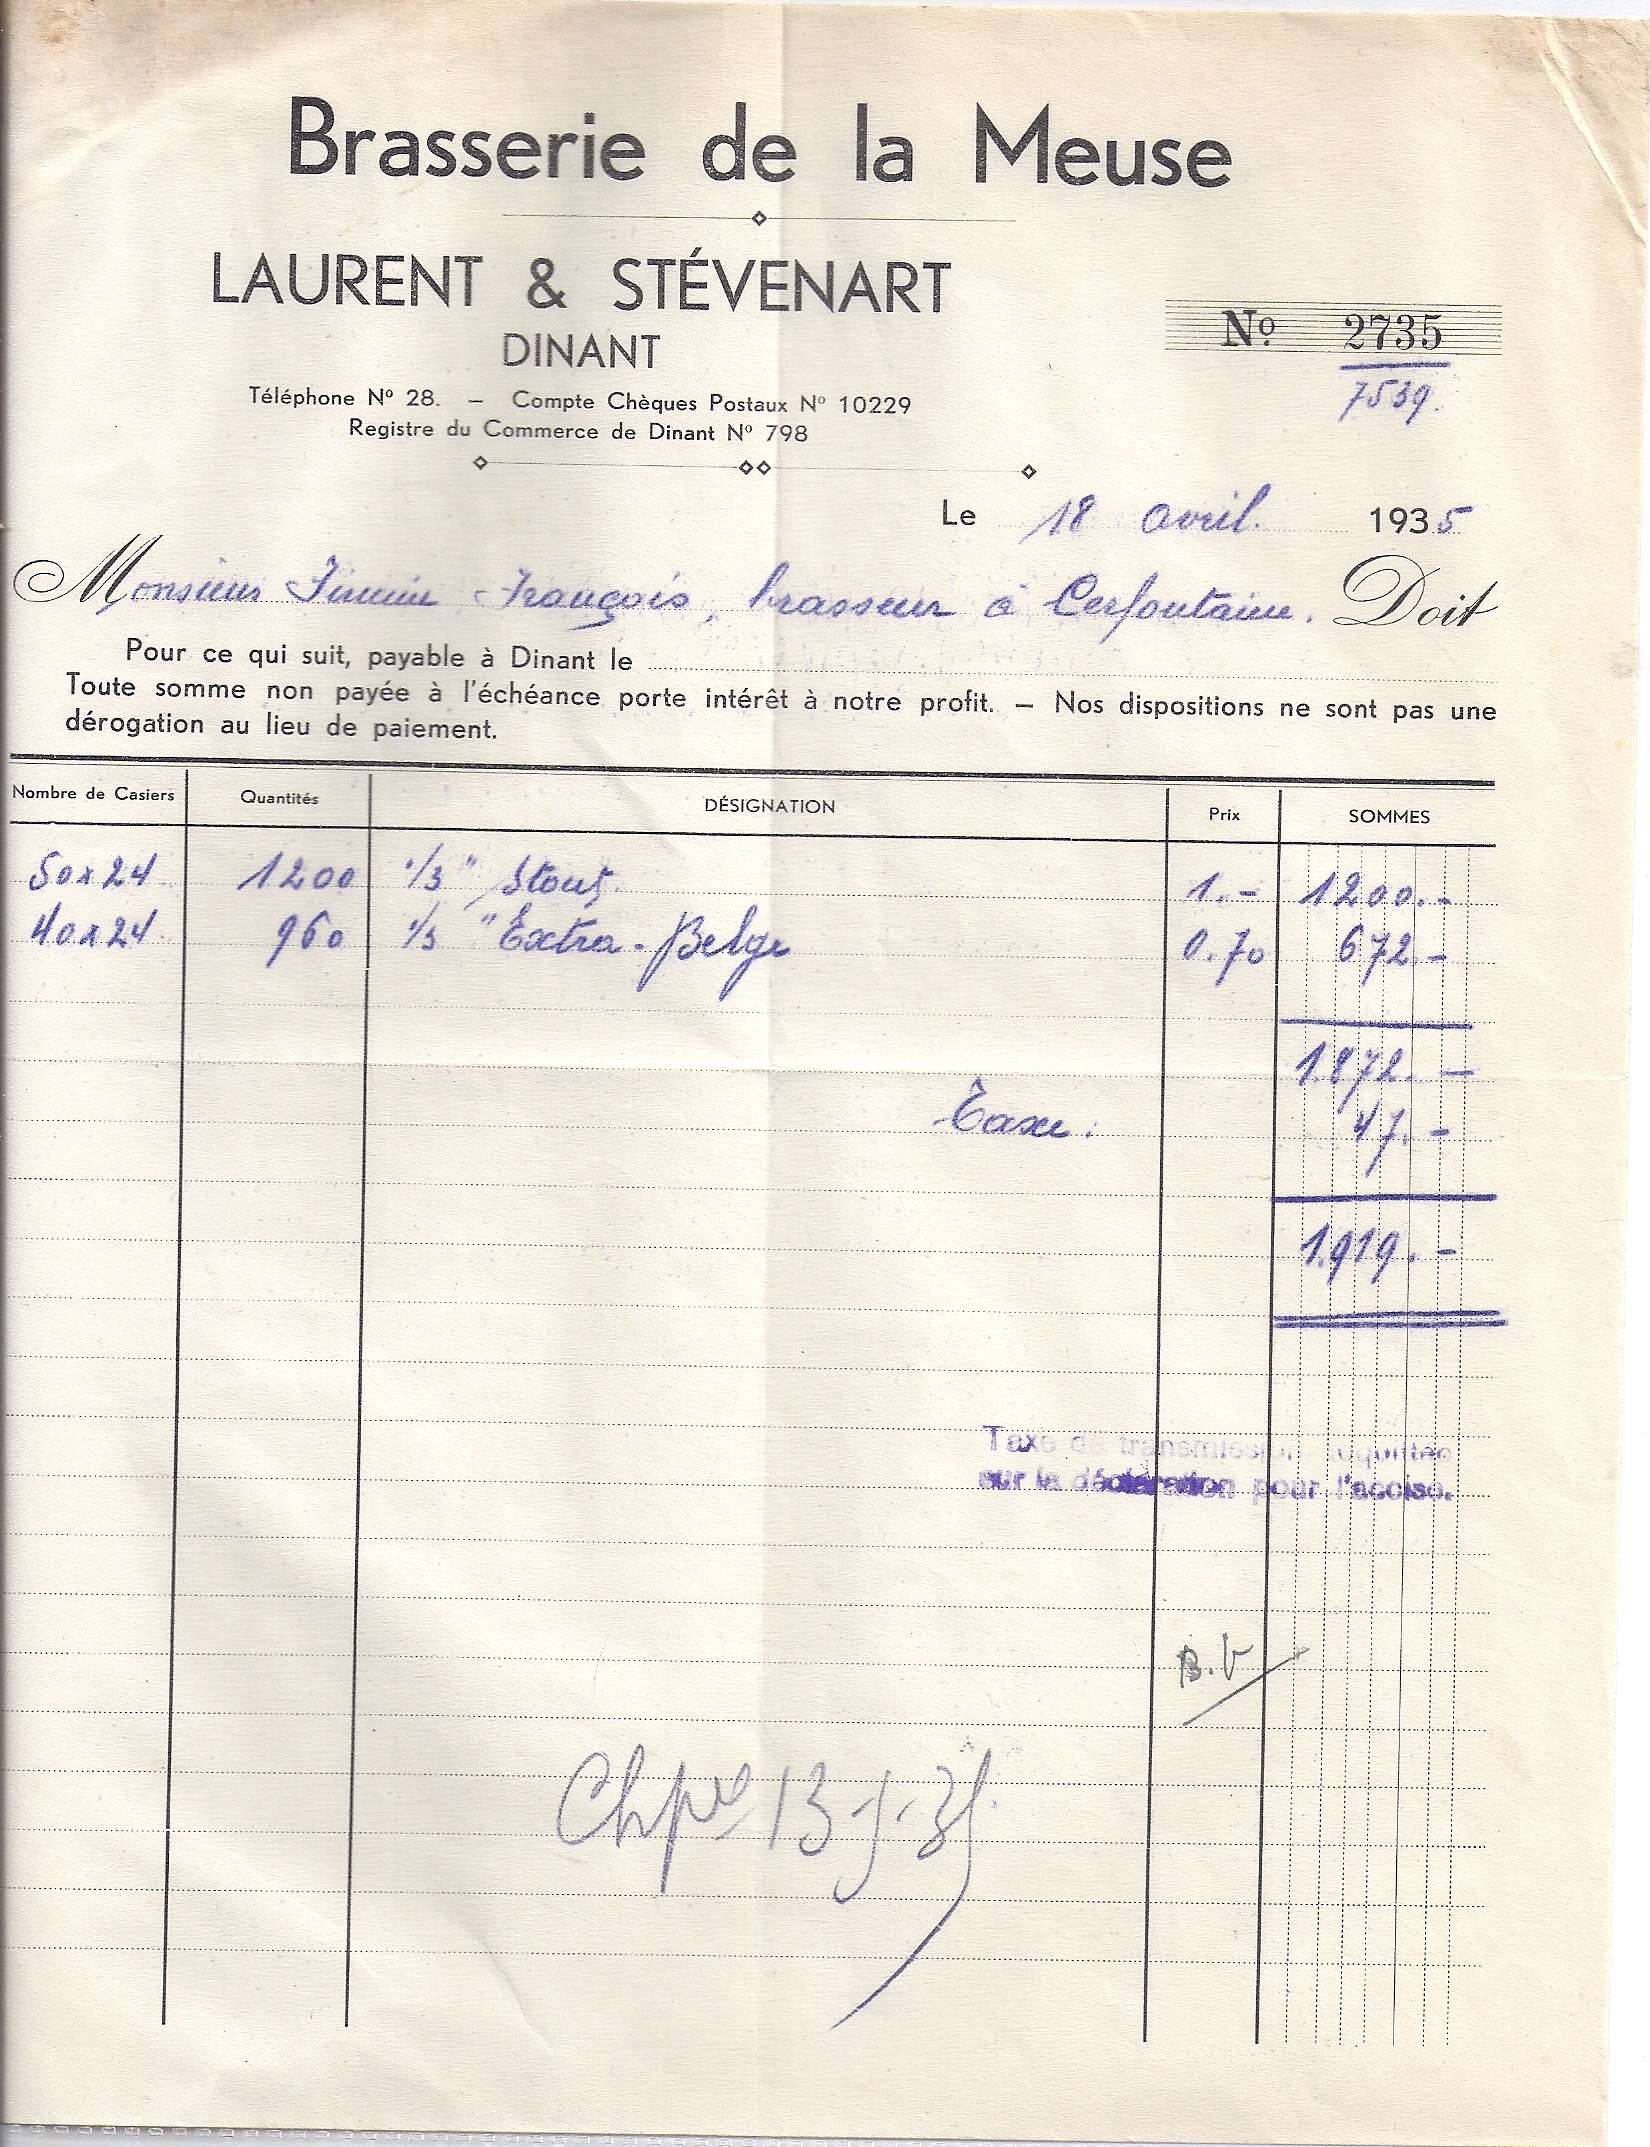 Brasserie de la Meuse
LAURENT & STÉVENART
DINANT
Nº 2735
7539.
Téléphone Nº 28. – Compte Chèques Postaux Nº 10229
Registre du Commerce de Dinant Nº 798
Le 18 avril. 1935
Monsieur Firmin François, brasseur à Cerfontaine. Doit
Pour ce qui suit, payable à Dinant le
Toute somme non payée à l'échéance porte intérêt à notre profit. – Nos dispositions ne sont pas une
dérogation au lieu de paiement.
Nombre de Casiers Quantités DÉSIGNATION Prix SOMMES
50x24 1200 1/3 " Stout 1.- 1200.-
40x24 960 1/3 " Extra-Belge 0.70 672.-
1.872.—
Taxe: 47.-
1.919.-
Taxe de transmission acquittée
sur la déclaration pour l'accise.
B.V